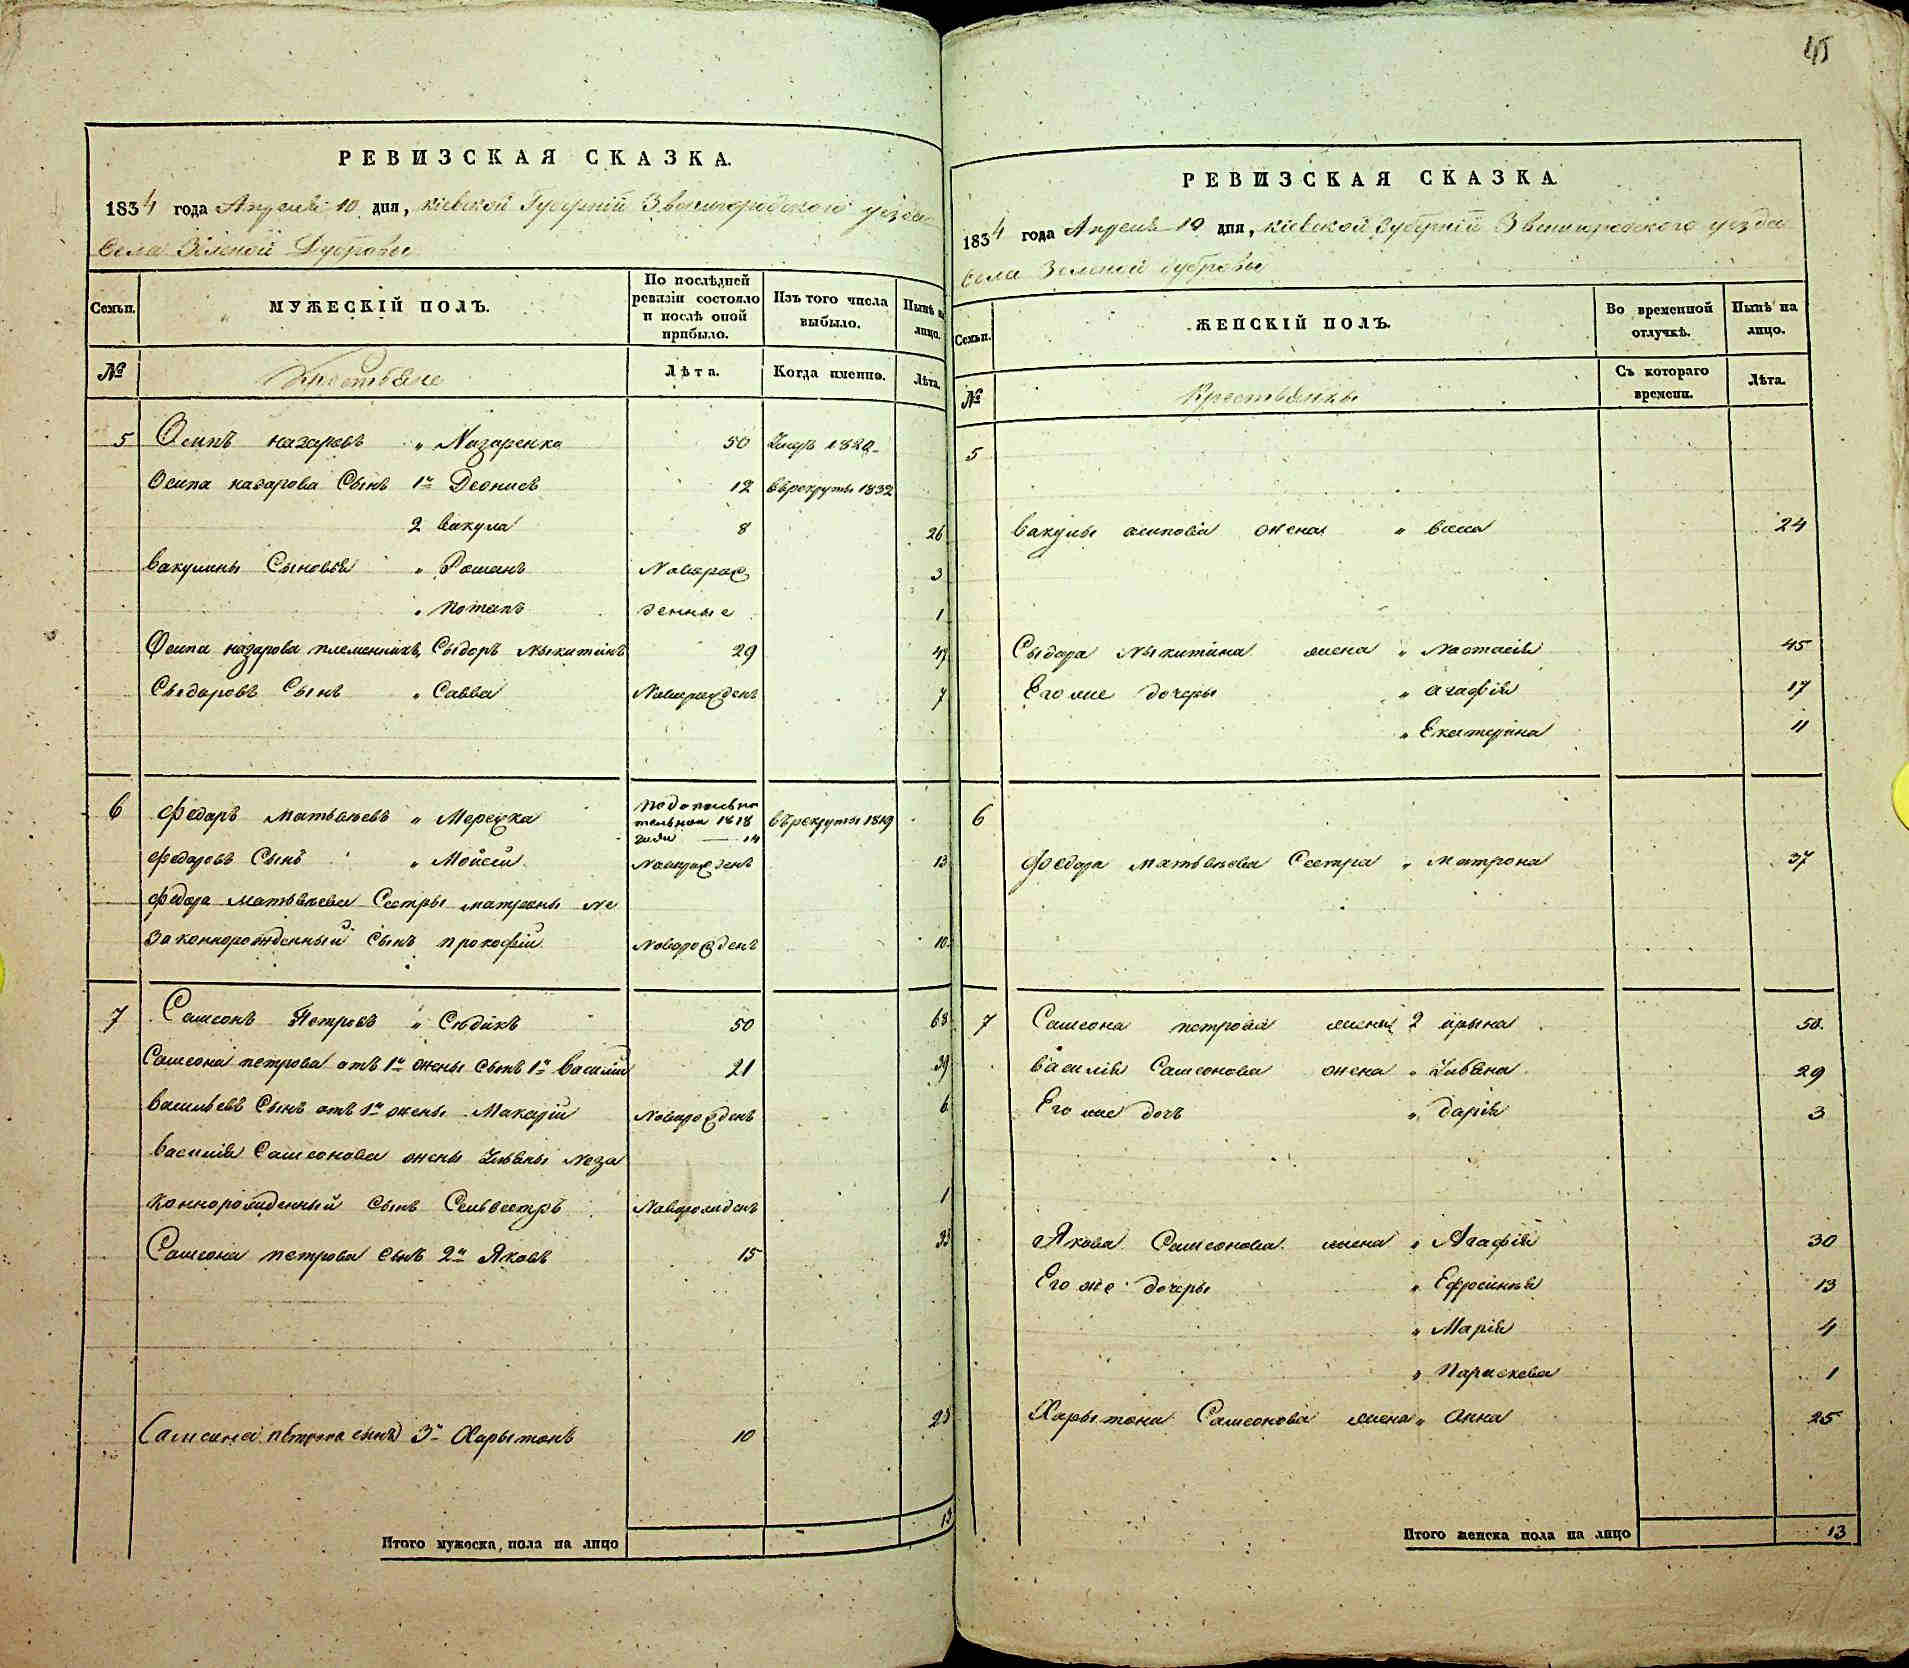 РЕВИЗСКАЯ СКАЗКА.
1834 года Апреля 10 дня, Кіевской Губерній Звенигородского уезда
Села Зеленой Дубровы
Семьи.
МУЖЕСКІЙ ПОЛЪ.
По послѣдней ревизіи состояло и послѣ оной прибыло.
Изъ того числа выбыло.
Нынѣ на лицо.
№
Крестьяне
Лѣта.
Когда именно.
Лѣта.
5 Осипъ назаровъ " Назаренко 50 1820
Осипа назарова Сынъ 1й Деонисъ 12 въ рекруты 1832
2 Вакула 8 26
Вакулины Сыновья " Романъ Новорож 3
" Потапъ денные 1
Осипа назарова племенникъ, Сыдоръ Мыкитинъ 29 47
Сыдоровъ Сынъ " Савва Новорожденъ 7
6 Федоръ Матвѣевъ " Мережка по дополнительной 1818 года 14 въ рекруты 1819
Федоровъ Сынъ " Мойсей Новорожденъ 13
Федора Матвѣева Сестры матроны не
законнорожденный Сынъ прокофій Новорожденъ 10
7 Самсонъ Петровъ " Сѣдикъ 50 68
Самсона петрова отъ 1й жены сынъ 1й Василий 21 39
Васильевъ Сынъ отъ 1й жены Макарій Новорожденъ 6
Василія Самсонова жены Ульяны неза
коннорожденный сынъ Сельвестръ Новорожденъ 1
Самсона петрова сынъ 2й Яковъ 15 33
Самсона петрова сынъ 3й Харытонъ 10 28
Итого мужеска, пола на лицо 13
45
РЕВИЗСКАЯ СКАЗКА
1834 года Апреля 10 дня, Кіевской Губерній Звенигородского уезда
Села Зеленой дубровы
Семьи.
ЖЕНСКІЙ ПОЛЪ.
Во временной отлучкѣ.
Нынѣ на лицо.
№
Крестьянки
Съ котораго времени.
Лѣта.
5
Вакулы осипова жена " Васса 24
Сыдора Мыкитина жена " Настасія 45
Его же дочеры " Агафія 17
" Екатерина 11
6
Федора матвѣева Сестра " матрона 37
7 Самсона петрова жена 2 ирына 50
Василія Самсонова жена " Ульяна 29
Его же дочъ " дарія 3
Якова Самсонова жена " Агафія 30
Его же дочеры " Ефросинія 13
" Марія 4
" Параскева 1
Харытона Самсонова жена " Анна 25
Итого женска пола на лицо 13